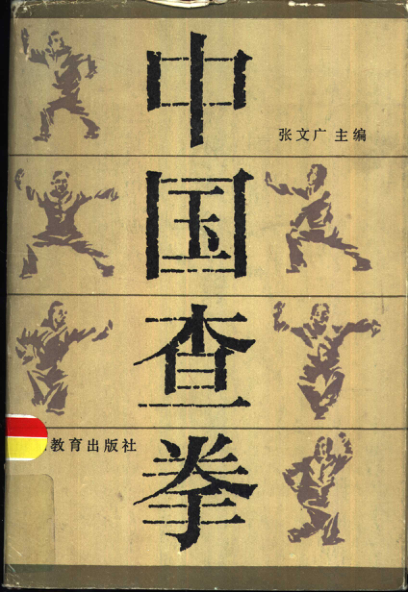 中国查拳
张文广 主编
教育出版社